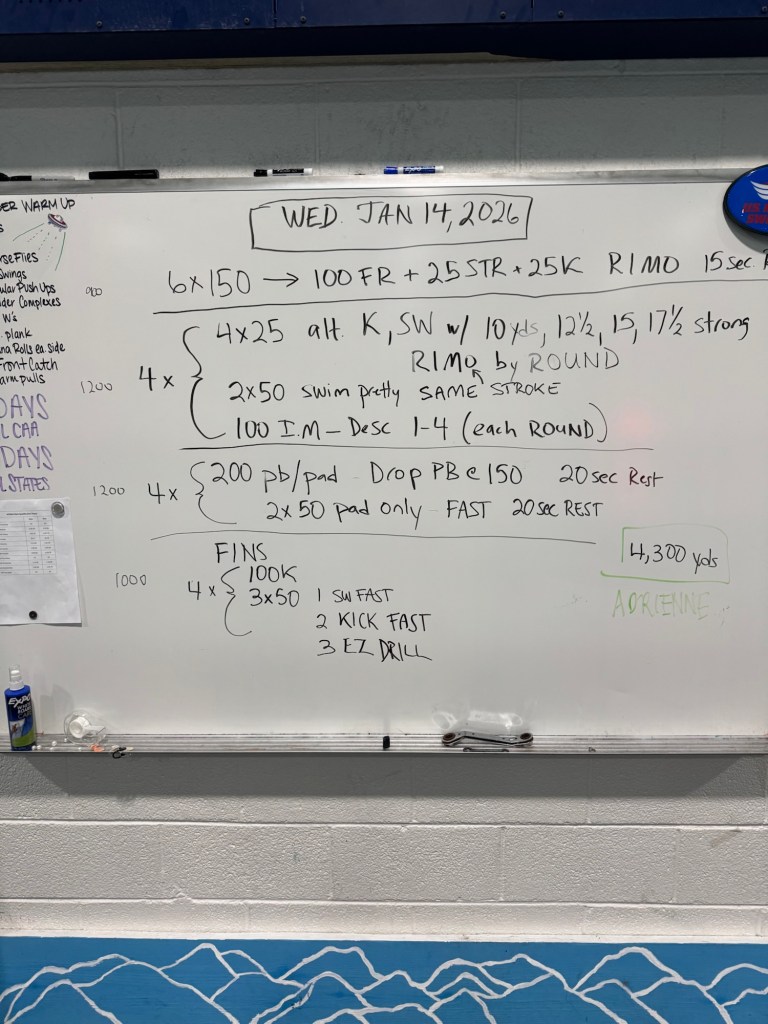 WARM UP
WED. JAN 14, 2026
Swings
Push Ups
Complexes
W's
plank
Rolls ea. side
Front Catch
arm pulls
DAYS
DAYS
STATES
900 6x150 → 100 FR + 25 STR + 25K RIMO 15 sec.
1200 4x
4x25 alt. K, SW w/ 10 yds, 12½, 15, 17½ strong
RIMO by ROUND
2x50 swim pretty SAME STROKE
100 I.M - Desc 1-4 (each ROUND)
1200 4x
200 pb/pad - Drop PB @ 150 20 sec Rest
2x50 pad only - FAST 20 sec REST
FINS
1000 4x
100K
3x50 1 SW FAST
2 KICK FAST
3 EZ DRILL
4,300 yds
ADRIENNE
EXPO